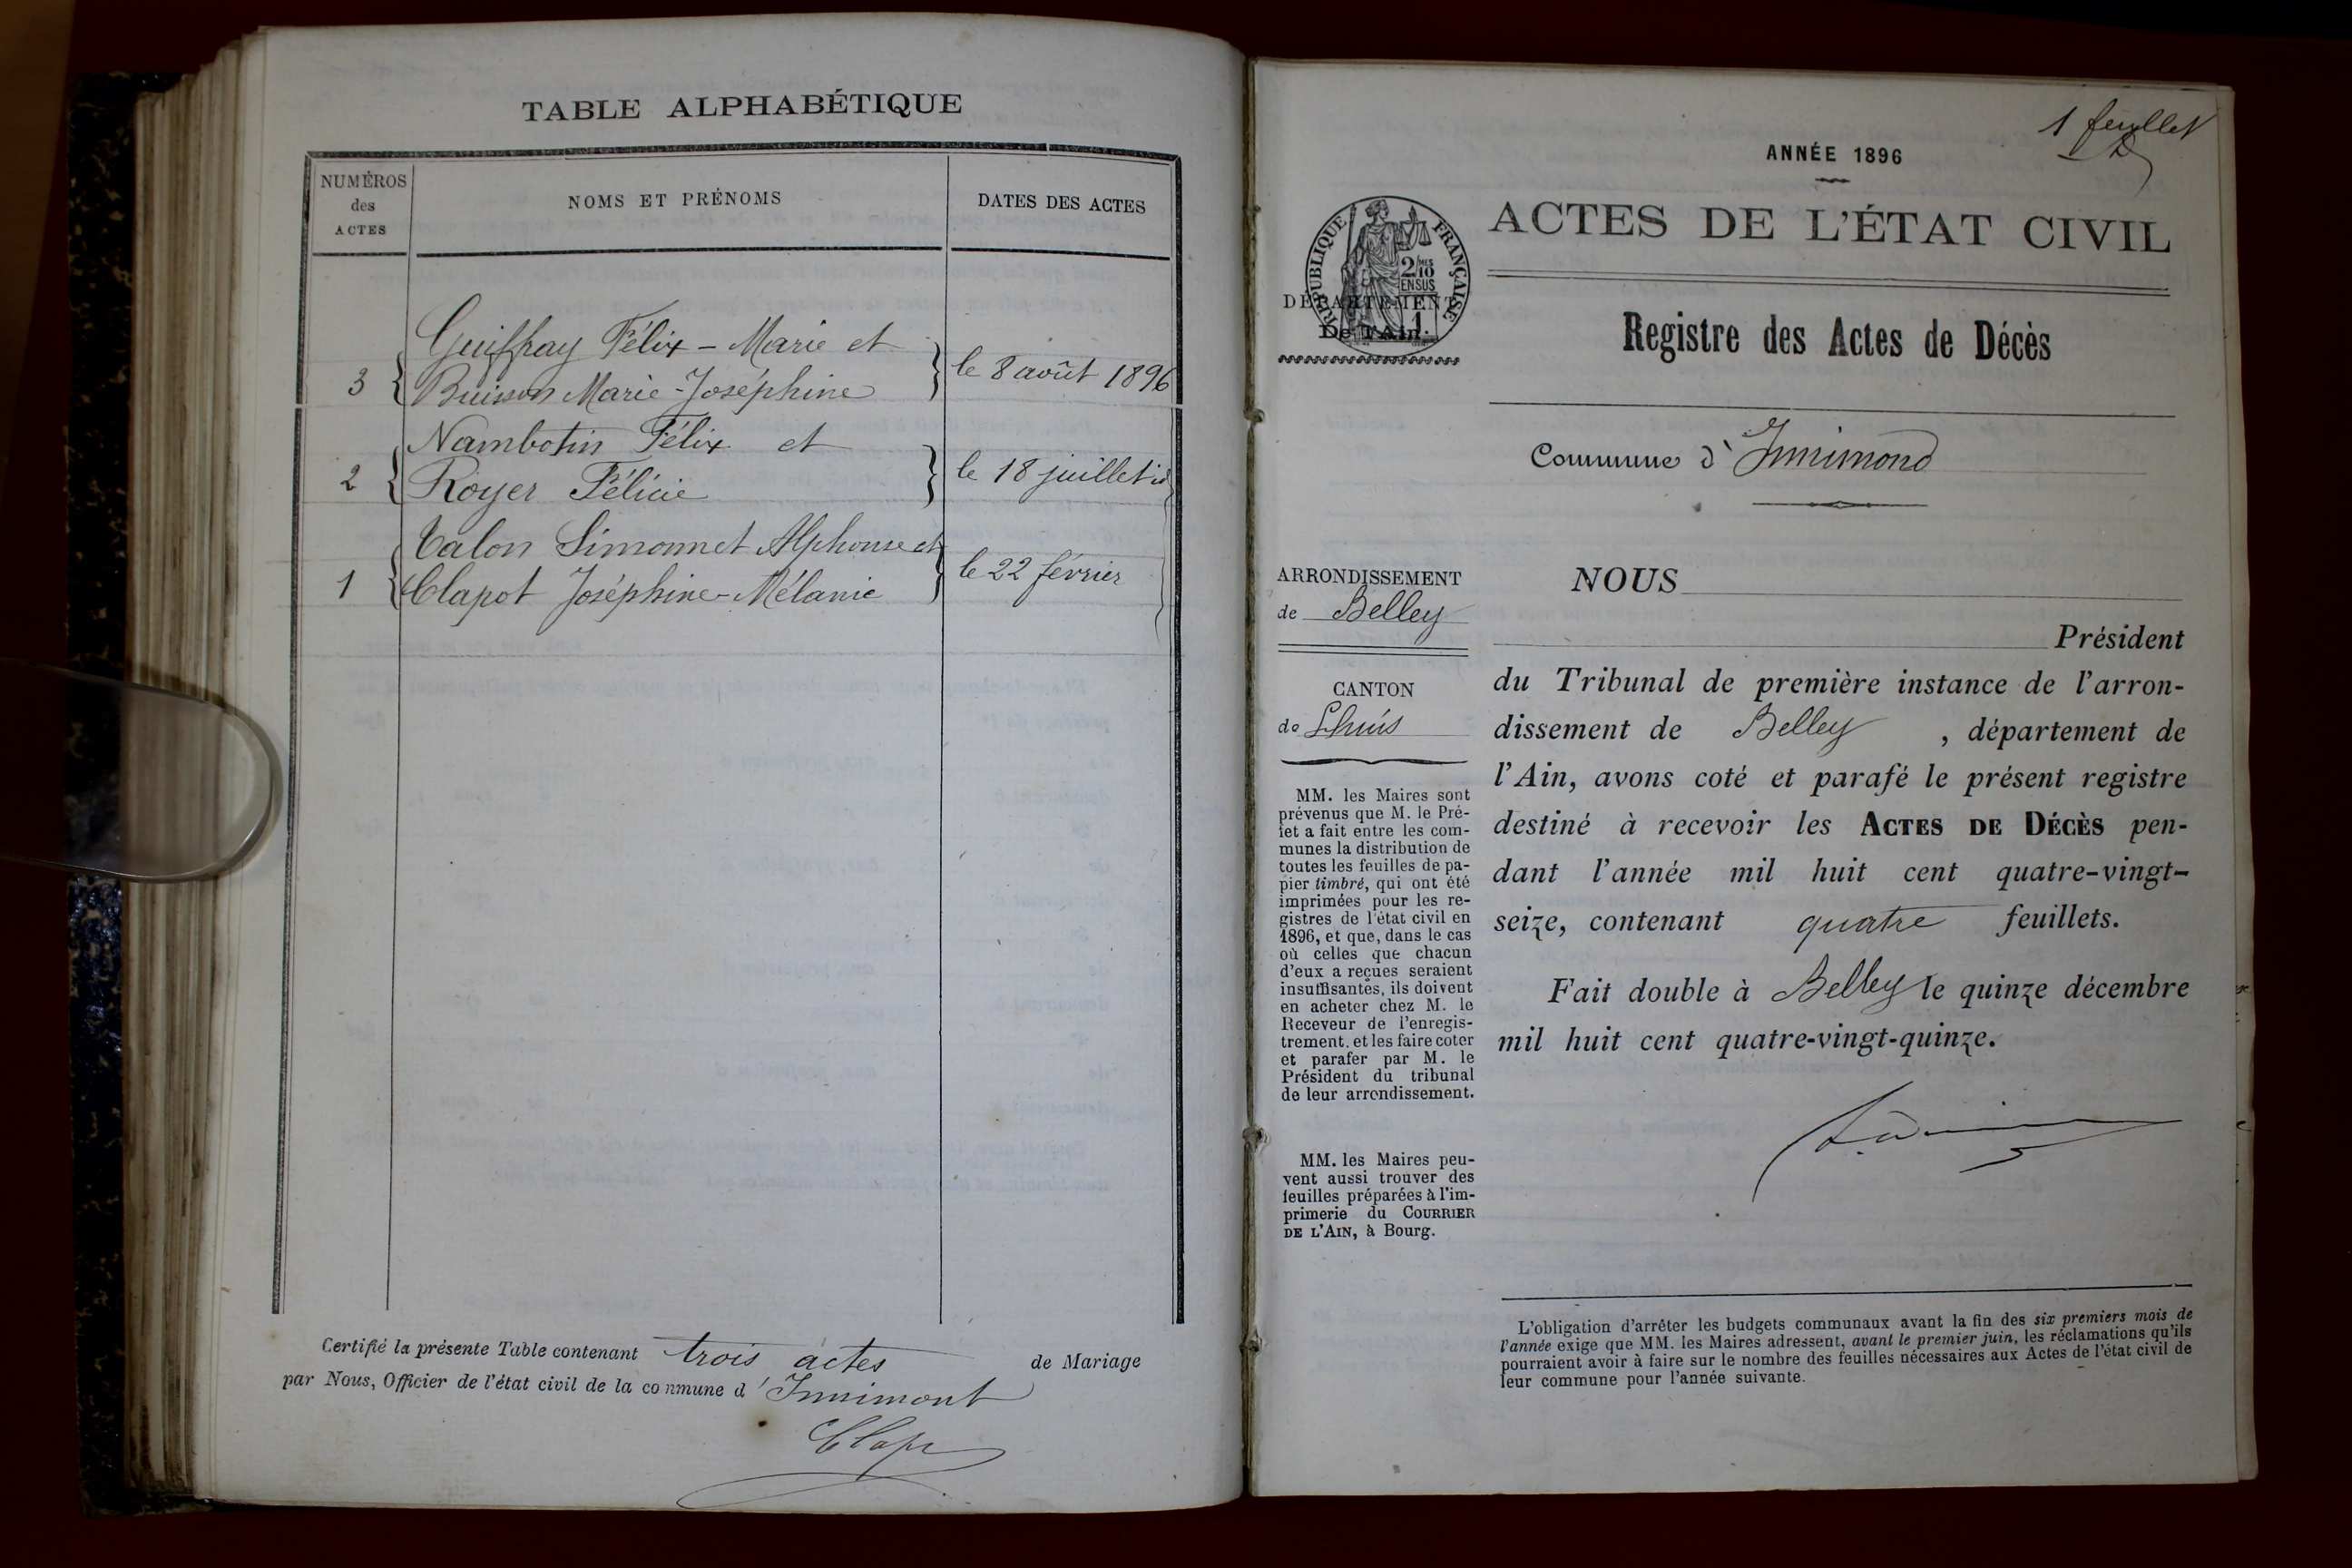 TABLE ALPHABÉTIQUE
NUMÉROS
des
ACTES
NOMS ET PRÉNOMS
DATES DES ACTES
Guiffray Félix - Marie et
3 Buisson Marie-Joséphine le 8 août 1896
Nambotin Félix et
2 Royer Félicie le 18 juillet id
Talon Simonnet Alphonse et
1 Clapot Joséphine-Mélanie le 22 février
Certifié la présente Table contenant trois actes de Mariage
par Nous, Officier de l'état civil de la commune d'Innimont
1 feuillet
ANNÉE 1896
RÉPUBLIQUE FRANÇAISE
2/10
EN SUS
DÉPARTEMENT
De l'Ain.
ACTES DE L'ÉTAT CIVIL
Registre des Actes de Décès
Commune d'Innimond
ARRONDISSEMENT
de Belley
CANTON
de Lhuis
MM. les Maires sont
prévenus que M. le Pré-
fet a fait entre les com-
munes la distribution de
toutes les feuilles de pa-
pier timbré, qui ont été
imprimées pour les re-
gistres de l'état civil en
1896, et que, dans le cas
où celles que chacun
d'eux a reçues seraient
insuffisantes, ils doivent
en acheter chez M. le
Receveur de l'enregis-
trement, et les faire coter
et parafer par M. le
Président du tribunal
de leur arrondissement.
MM. les Maires peu-
vent aussi trouver des
feuilles préparées à l'im-
primerie du COURRIER
DE L'AIN, à Bourg.
NOUS
Président
du Tribunal de première instance de l'arron-
dissement de Belley, département de
l'Ain, avons coté et parafé le présent registre
destiné à recevoir les ACTES DE DÉCÈS pen-
dant l'année mil huit cent quatre-vingt-
seize, contenant quatre feuillets.
Fait double à Belley le quinze décembre
mil huit cent quatre-vingt-quinze.
L'obligation d'arrêter les budgets communaux avant la fin des six premiers mois de
l'année exige que MM. les Maires adressent, avant le premier juin, les réclamations qu'ils
pourraient avoir à faire sur le nombre des feuilles nécessaires aux Actes de l'état civil de
leur commune pour l'année suivante.